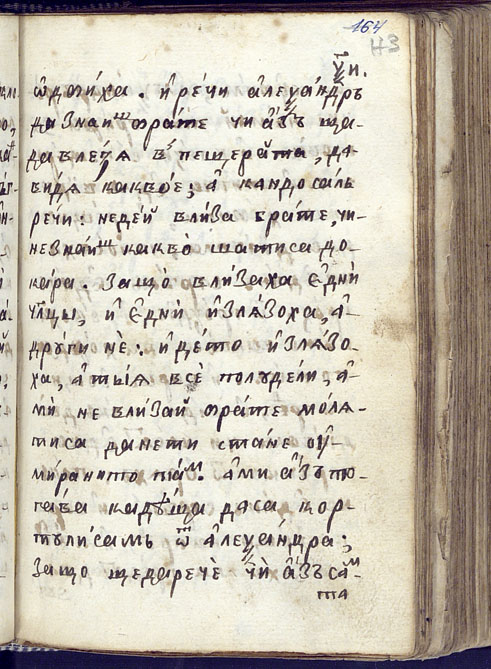 164
НЗ
ѱи.
ѡдоиха. и҆ рѐчи а҆леѯа́ндръ
да знаиⷲ брате чи а҆зъ ща-
да влѐзѧ в пещерата, да-
видѧ какво̀е; а҆ кандосаль
речи: недей влиза брате, чи-
незнаиⷲ какво̀ шатиса до-
кара. защо̀ влизаха є҆днѝ
чл҃цы, и҆ є҆днѝ излѧзоха, а҆-
дрꙋги нѐ: и҆ дето излѧзо-
ха, а҆ тыѧ всѐ полудели, а҆-
мѝ не влизай брате молѧ-
тиса данети стане оу҆-
мирането таⷨ. а҆ми а҆зъ то-
гава кадѣща даса кор-
тулисамь ѿ а҆леѯандра;
защо щедаречѐ чѝ а҆зъ саⷨ
та